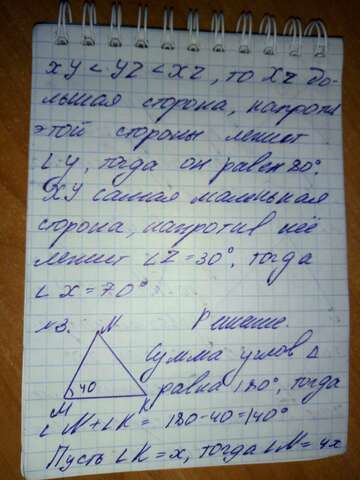 XY < YZ < XZ, то XZ бо-
льшая сторона, напротив
этой стороны лежит
∠Y, тогда он равен 80°.
XY самая маленькая
сторона, напротив неё
лежит ∠Z = 30°, тогда
∠X = 70°
№3. N Решение.
Сумма углов Δ
40 равна 180°, тогда
M K
∠N + ∠K = 180 - 40 = 140°
Пусть ∠K = x, тогда ∠N = 4x